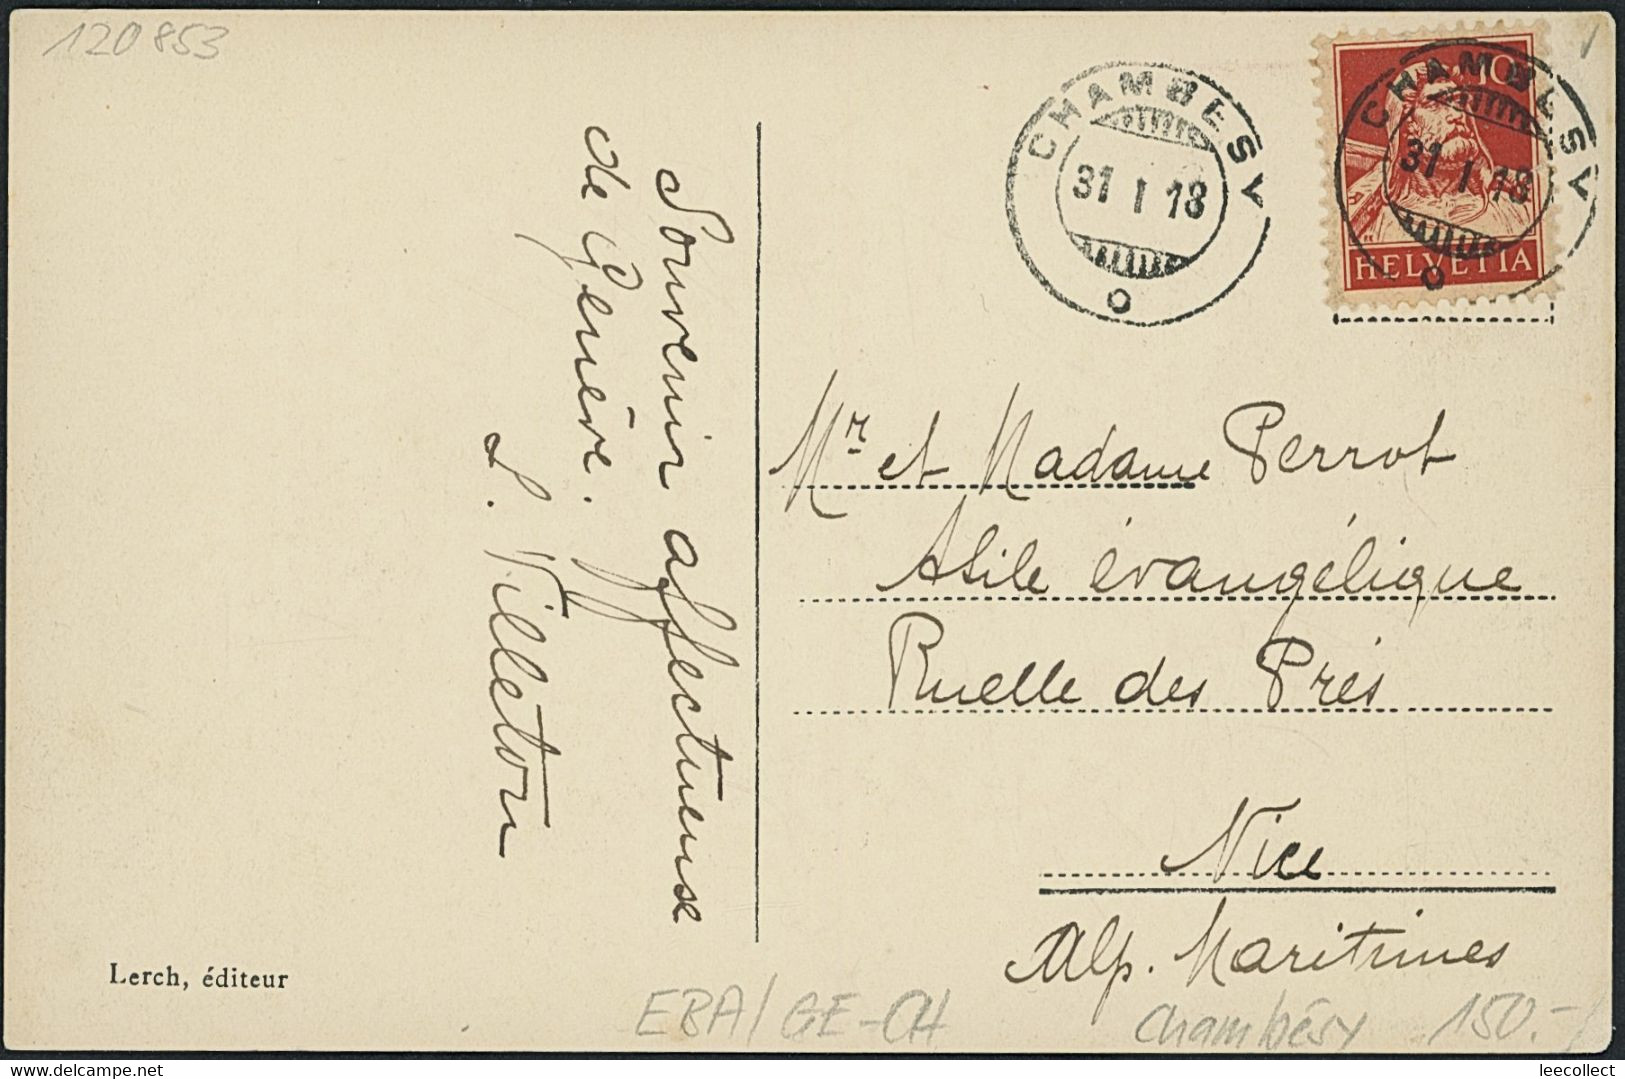 120853
CHAMBESY
31 I 18
10
CHAMBESY
31 I 18
HELVETIA
Souvenir affectueuse
de Genève.
L. Villeton
Mr et Madame Perrot
Asile évangélique
Ruelle des Prés
Nice
Alp. Maritimes
Lerch, éditeur
EBA/GE-CH
Chambésy 150.-
leecollect